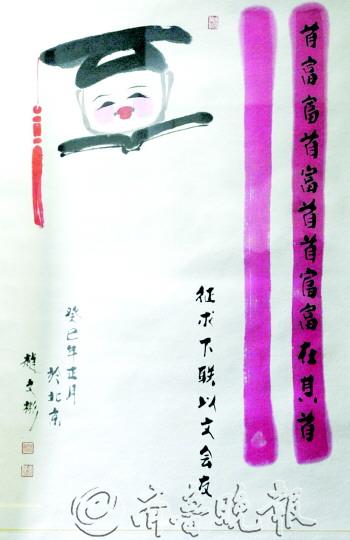 首富富首富首首富富在其首
征求下联以文会友
癸巳年正月
於北京
趙文彬
@齐鲁晚报